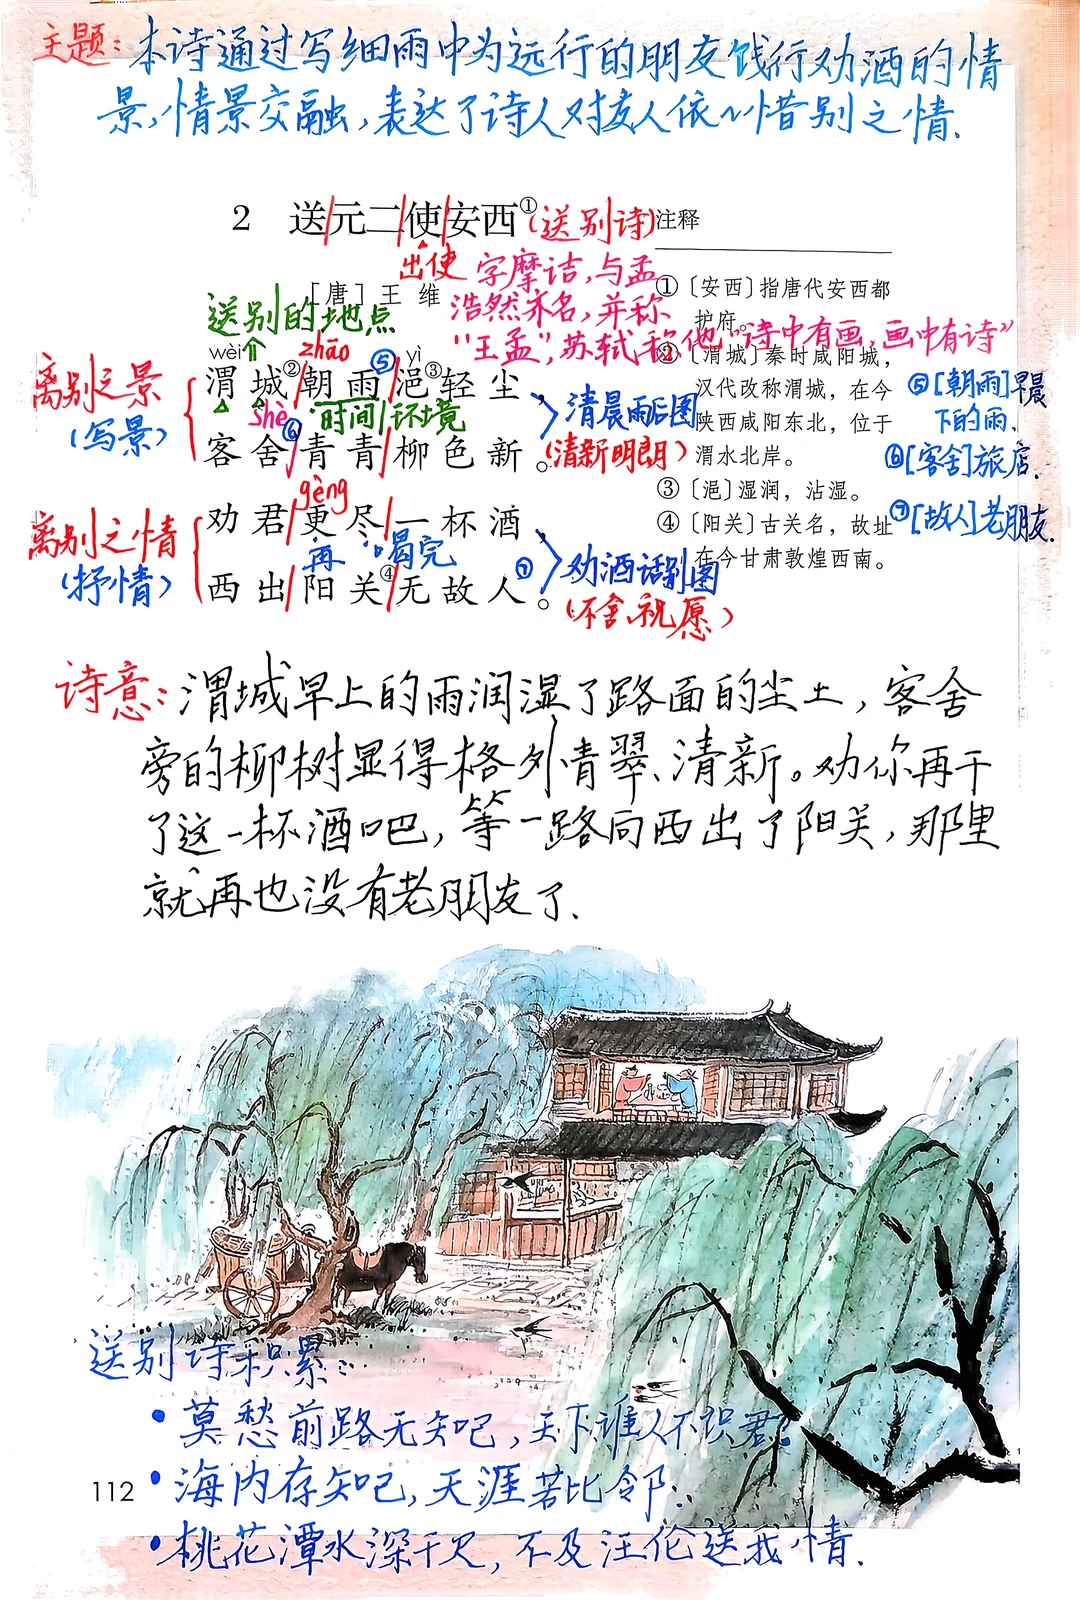 主题：本诗通过写细雨中为远行的朋友饯行劝酒的情
景，情景交融，表达了诗人对友人依〃惜别之情.
2 送/元二/使/安西①(送别诗)
出使
字摩诘,与孟
浩然齐名,并称
"王孟",苏轼称他"诗中有画,画中有诗"
［唐］王 维
送别的地点
wèi zhāo ⑤ yì
渭城②朝雨浥③轻尘，
shè ⑥ 时间 环境
客舍/青青/柳色新。
离别之景
(写景)
清晨雨后图
(清新明朗)
gèng
劝君/更尽/一杯酒，
再 喝完
西出/阳关④/无故人⑦。
离别之情
(抒情)
劝酒话别图
(不舍、祝愿)
注释
①〔安西〕指唐代安西都
护府。
②〔渭城〕秦时咸阳城，
汉代改称渭城，在今
陕西咸阳东北，位于
渭水北岸。
③〔浥〕湿润，沾湿。
④〔阳关〕古关名，故址
在今甘肃敦煌西南。
⑤[朝雨]早晨
下的雨.
⑥[客舍]旅店.
⑦[故人]老朋友.
诗意：渭城早上的雨润湿了路面的尘土，客舍
旁的柳树显得格外青翠、清新。劝你再干
了这一杯酒吧，等一路向西出了阳关，那里
就再也没有老朋友了.
送别诗积累：
•莫愁前路无知己，天下谁人不识君？
•海内存知己，天涯若比邻.
•桃花潭水深千尺，不及汪伦送我情.
112